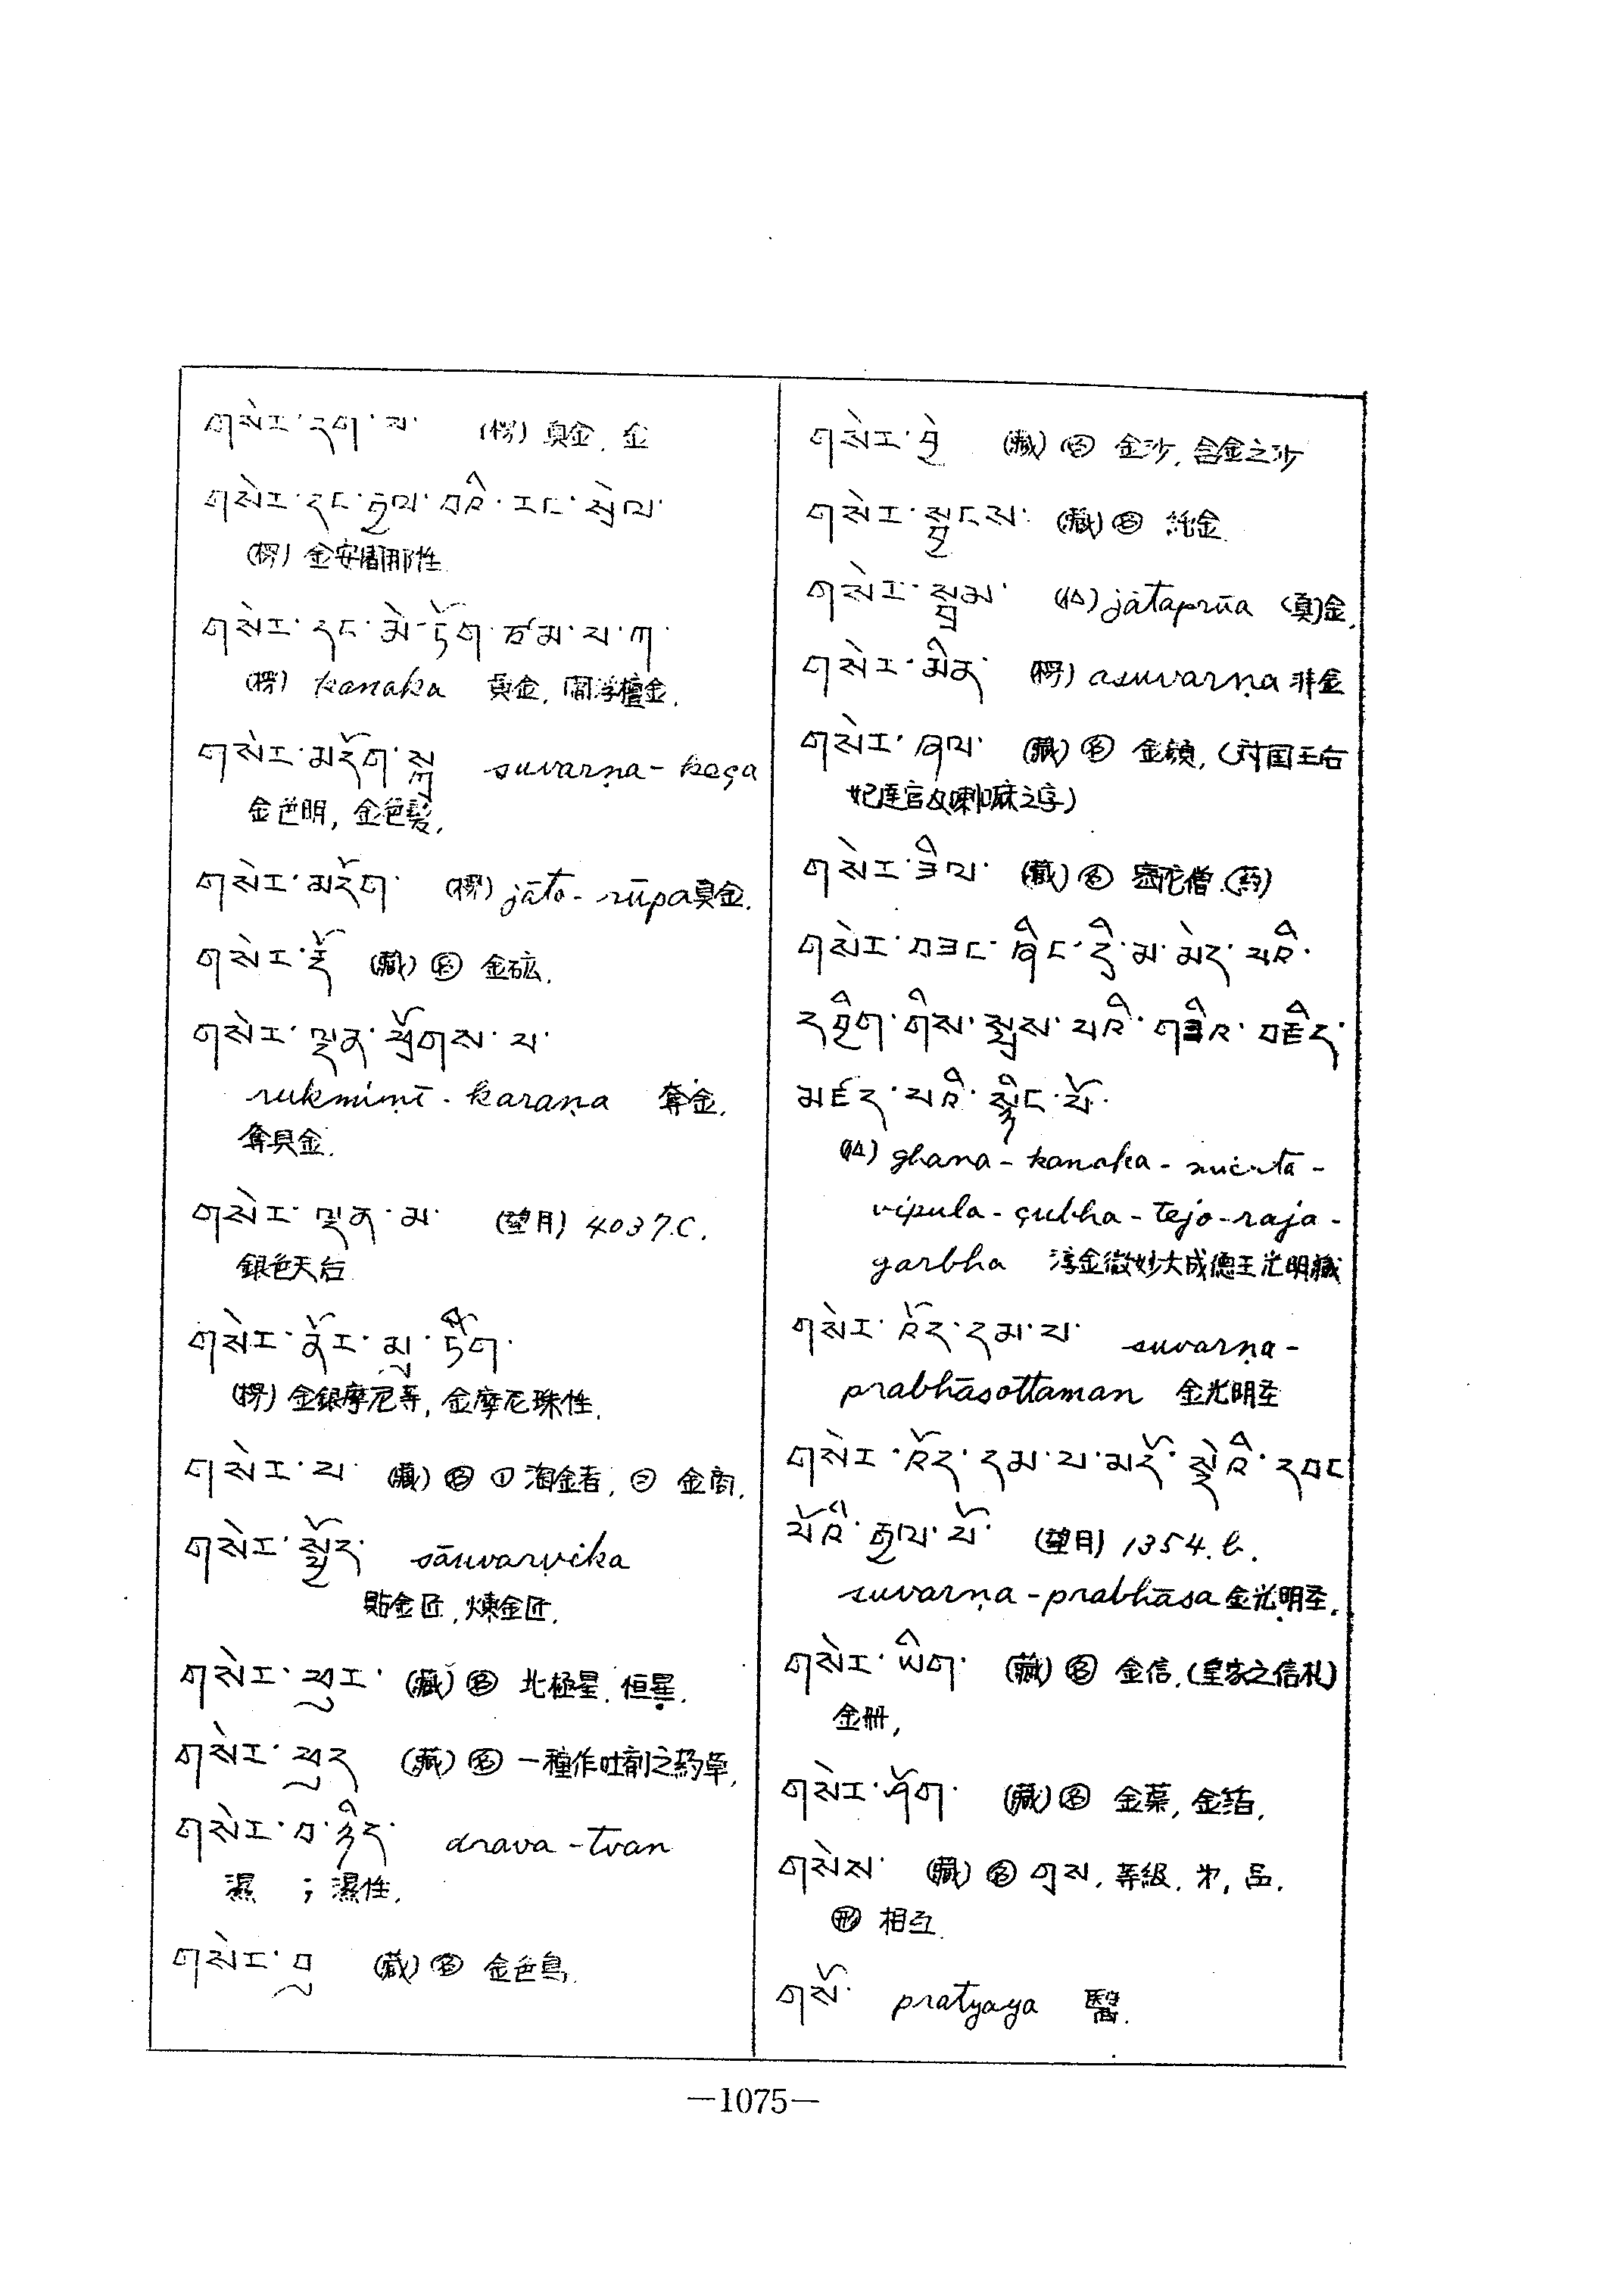 གསེར་དག་པ་ (楞) 真金, 金
གསེར་དང་རྒྱལ་བའི་རང་སྲེལ་
(楞) 金安闍那性
གསེར་དང་མེ་ཏོག་ཙམ་པ་ཀ་
(楞) kanaka 真金, 閻浮檀金.
གསེར་མདོག་སྐྲ suvarṇa-keça
金色明, 金色髪,
གསེར་མདོག་ (楞) jāto-rūpa真金.
གསེར་རྡོ (藏) 名 金砿.
གསེར་ལྡན་ཕྲོགས་པ་
rukmiṇī-karaṇa 奪金,
奪具金.
གསེར་ལྡན་མ་ (望月) 4037.C.
銀色天后
གསེར་ནོར་མུ་ཏིག་
(楞) 金銀摩尼等, 金摩尼珠性.
གསེར་པ་ (藏) 名 ① 淘金者, ② 金商.
གསེར་སྦྱོད་ sāuvarṇika
貼金匠, 煉金匠.
གསེར་ཕུར་ (藏) 名 北極星, 恒星.
གསེར་ཕུད (藏) 名 一種作吐劑之葯草,
གསེར་བ་ཉིད་ drava-tvan
濕 ; 濕性.
གསེར་བྱ (藏) 名 金色鳥.
གསེར་བྱེ (藏) 名 金沙, 含金之沙
གསེར་སྦྱངས་ (藏) 名 純金.
གསེར་སྦྲམ་ jātaprūa (真)金.
གསེར་མིན་ (楞) asuvarṇa 非金
གསེར་ཞལ་ (藏) 名 金顔, (対国王后
妃達官及喇嘛之字)
གསེར་ཟིལ་ (藏) 名 密陀僧.(葯)
གསེར་བཟང་ཞིང་དྲི་མ་མེད་པའི་
དབྱིག་གིས་སྤྲས་པའི་གཟི་བརྗིད་
མཛད་པའི་སྙིང་པོ་
ghana-kanaka-
vipula-çubha-tejo-raja-
garbha 淳金微妙大成德王光明藏
གསེར་འོད་དམ་པ་ suvarṇa-
prabhāsottaman 金光明圣
གསེར་འོད་དམ་པ་མདོ་སྡེའི་དབང
པོའི་རྒྱལ་པོ་ (望月) 1354.b.
suvarṇa-prabhāsa 金光明圣.
གསེར་ཡིག་ (藏) 名 金信.(皇家之信札)
金冊,
གསེར་ཤོག་ (藏) 名 金葉, 金箔,
གསེས་ (藏) 名 གུས, 等級.
形 相互
གསོ་ pratyaya 醫.
—1075—